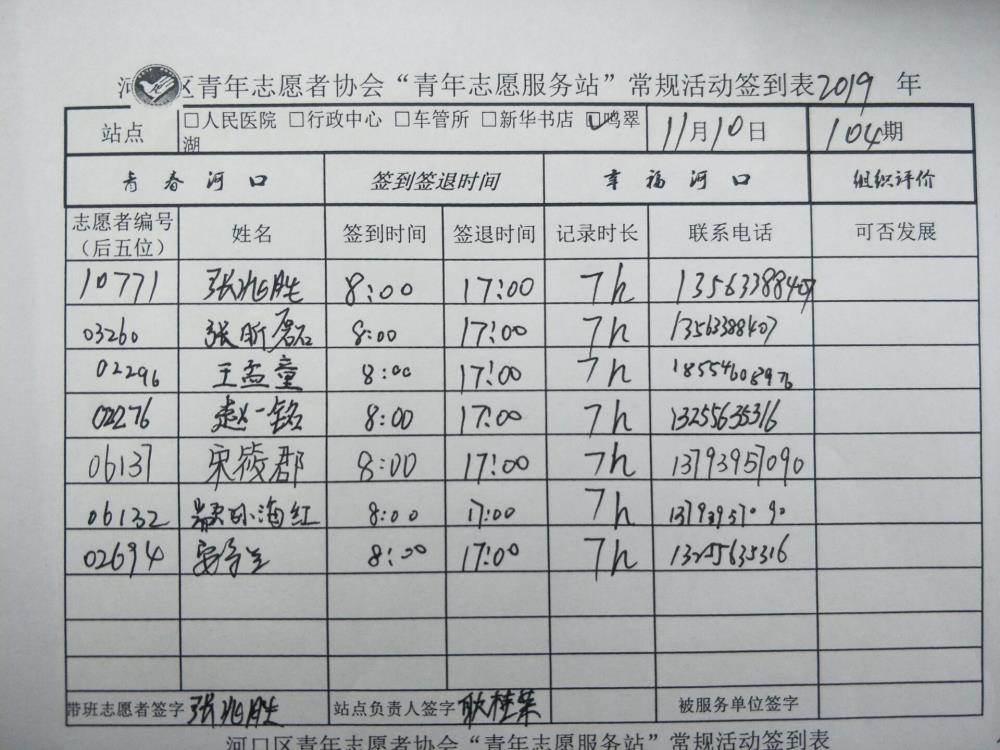 河口区青年志愿者协会“青年志愿服务站”常规活动签到表2019 年
站点 □人民医院 □行政中心 □车管所 □新华书店 ☑鸣翠湖 11月10日 104期
青春河口 签到签退时间 幸福河口 组织评价
志愿者编号（后五位） 姓名 签到时间 签退时间 记录时长 联系电话 可否发展
10771 张兆胜 8:00 17:00 7h 13563388407
03260 张昕磊 8:00 17:00 7h 13563388407
02296 王孟童 8:00 17:00 7h 18554608976
02276 赵一铭 8:00 17:00 7h 13255635316
06137 宋筱郡 8:00 17:00 7h 13793957090
06132 海红 8:00 17:00 7h 13793957090
02694 8:00 17:00 7h 13255635316
带班志愿者签字 张兆胜 站点负责人签字 耿桂荣 被服务单位签字
河口区青年志愿者协会“青年志愿服务站”常规活动签到表